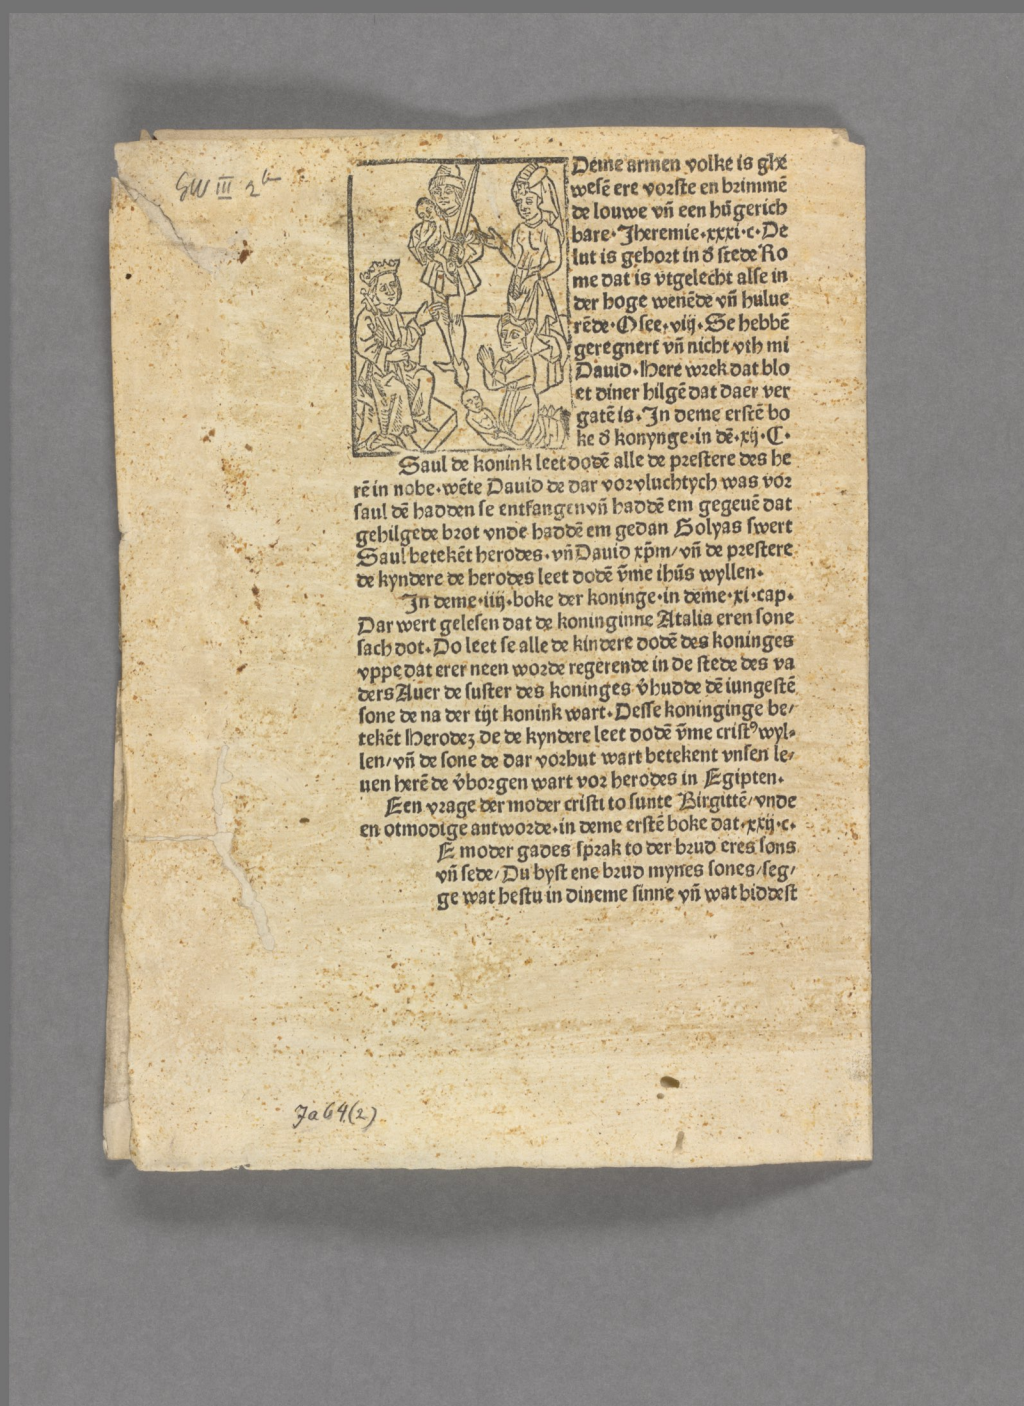 GW III 2b
Deme armen volke is ghē
wesē ere vorste en brimmē
de louwe vn̄ een hūgerich
bare·Jheremie·xxxi·c·De
lut is gehort in d̄ stede Ro
me dat is vtgelecht alse in
der hoge wenēde vn̄ hulue
rēde·Osee·viij·Se hebbē
geregnert vn̄ nicht vth mi
Dauid·Here wrek dat blo
et diner hilgē dat daer ver
gatē is·In deme erstē bo
ke d̄ konynge·in dē·xij·C·
Saul de konink leet dodē alle de prestere des he
rē in nobe·wēte Dauid de dar vorvluchtych was vor
saul dē hadden se entfangen vn̄ haddē em gegeuē dat
gehilgede brot vnde haddē em gedan Golyas swert
Saul betekēt herodes·vn̄ Dauid xp̄m/vn̄ de prestere
de kyndere de herodes leet dodē v̄me ihūs wyllen·
In deme·iiij·boke der koninge·in deme·xi·cap·
Dar wert gelesen dat de koninginne Atalia eren sone
sach dot·Do leet se alle de kindere dodē des koninges
vppe dat erer neen worde regerende in de stede des va
ders Auer de suster des koninges v̄hudde dē iungestē
sone de na der tijt konink wart·Desse koninginge be/
tekēt Herodeʒ de de kyndere leet dodē v̄me cristꝰ wyl⸗
len/vn̄ de sone de dar vorhut wart betekent vnsen le/
uen herē de v̄borgen wart vor herodes in Egipten·
Een vrage der moder cristi to sunte Birgittē/vnde
en otmodige antworde·in deme erstē boke dat·xxij·c·
E moder gades sprak to der brud eres sons
vn̄ sede/Du byst ene brud mynes sones/seg/
ge wat hestu in dineme sinne vn̄ wat biddest
Ja 64(2)